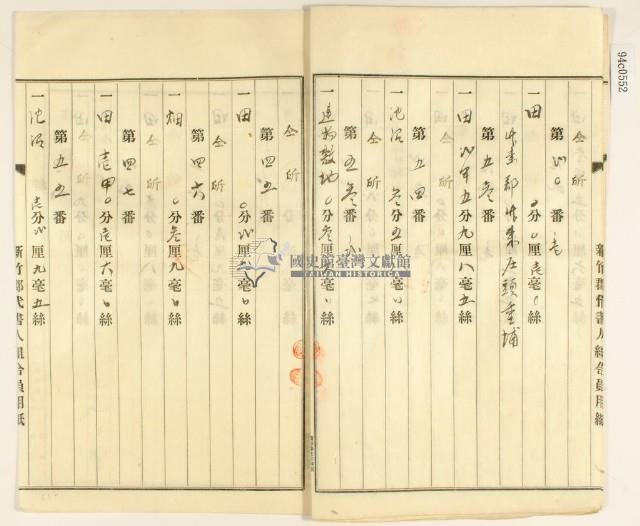 仝所
第貳〇番ノ壱
一田 〇〇厘壱毫〇絲
竹東郡竹東庄頭重埔
第五叁番
一田 貳甲五分九厘八毫五絲
仝所
第五四番
一池沼 叁分五厘〇毫〇絲
仝所
第五叁番ノ貳
一建物敷地 〇分叁厘〇毫〇絲
新竹郡代書人組合員用紙
仝所
第四五番
一田 〇分貳厘八毫〇絲
仝所
第四六番
一畑 〇分叁厘九毫〇絲
第四七番
一田 壱甲〇分壱厘六毫〇絲
第五五番
一池沼 壱分貳厘九毫五絲
新竹郡代書人組合員用紙
國史館臺灣文獻館
TAIWAN HISTORICA
94c0552